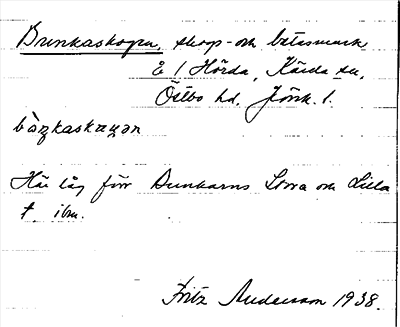 Bunkaskogen, skog- och betesmark
E / Hörda, Kärda sn,
Östbo hd. Jönk. l.
Här låg förr Bunkarns Stora och Lilla
t. ibm.
Fritz Andersson 1938.